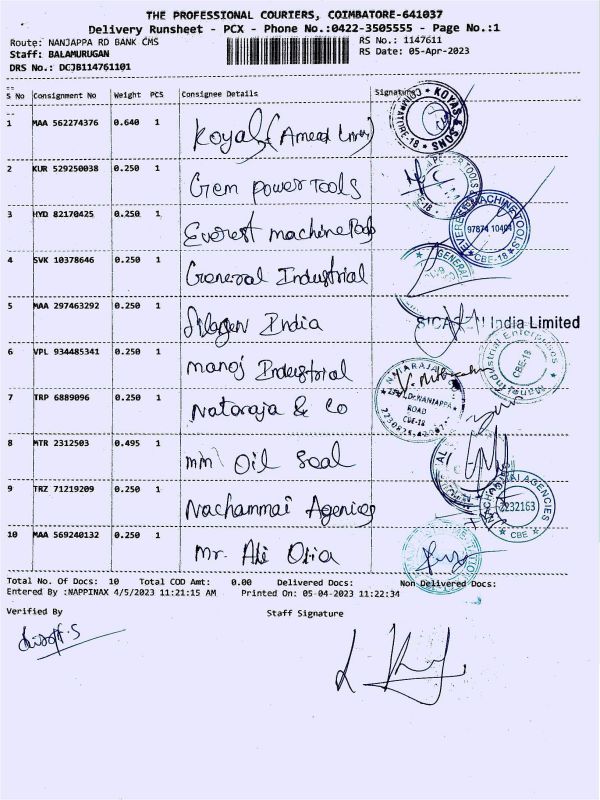 THE PROFESSIONAL COURIERS, COIMBATORE-641037
Delivery Runsheet - PCX - Phone No.:0422-3505555 - Page No.:1
Route: NANJAPPA RD BANK CMS RS No.: 1147611
Staff: BALAMURUGAN RS Date: 05-Apr-2023
DRS No.: DCJB114761101
S No Consignment No Weight PCS Consignee Details Signature
1 MAA 562274376 0.640 1 Koyal
KOYAS & SONS
CBE-18
2 KUR 529250038 0.250 1 Gem power Tools
3 HYD 82170425 0.250 1 Everest machine Tools
EVEREST MACHINE TOOLS
97874 10404
CBE-18
4 SVK 10378646 0.250 1 General Industrial
GENERAL
5 MAA 297463292 0.250 1 India
India Limited
6 VPL 934485341 0.250 1 manoj Industrial
Manoj Industrial Enterprises
CBE-18
7 TRP 6889096 0.250 1 Nataraja & Co
NATARAJA
NANJAPPA
ROAD
CBE-18
8 MTR 2312503 0.495 1 mm Oil Seal
9 TRZ 71219209 0.250 1 Nachammai Agencies
NACHAMMAI AGENCIES
2232163
CBE
10 MAA 569240132 0.250 1 Mr. Ali
Total No. Of Docs: 10 Total COD Amt: 0.00 Delivered Docs: Non Delivered Docs:
Entered By :NAPPINAX 4/5/2023 11:21:15 AM Printed On: 05-04-2023 11:22:34
Verified By Staff Signature